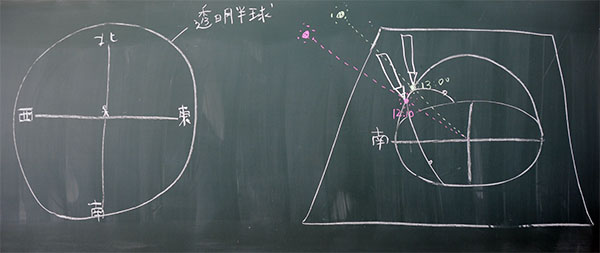 透明半球
北
西
東
南
13:00
12:10
南